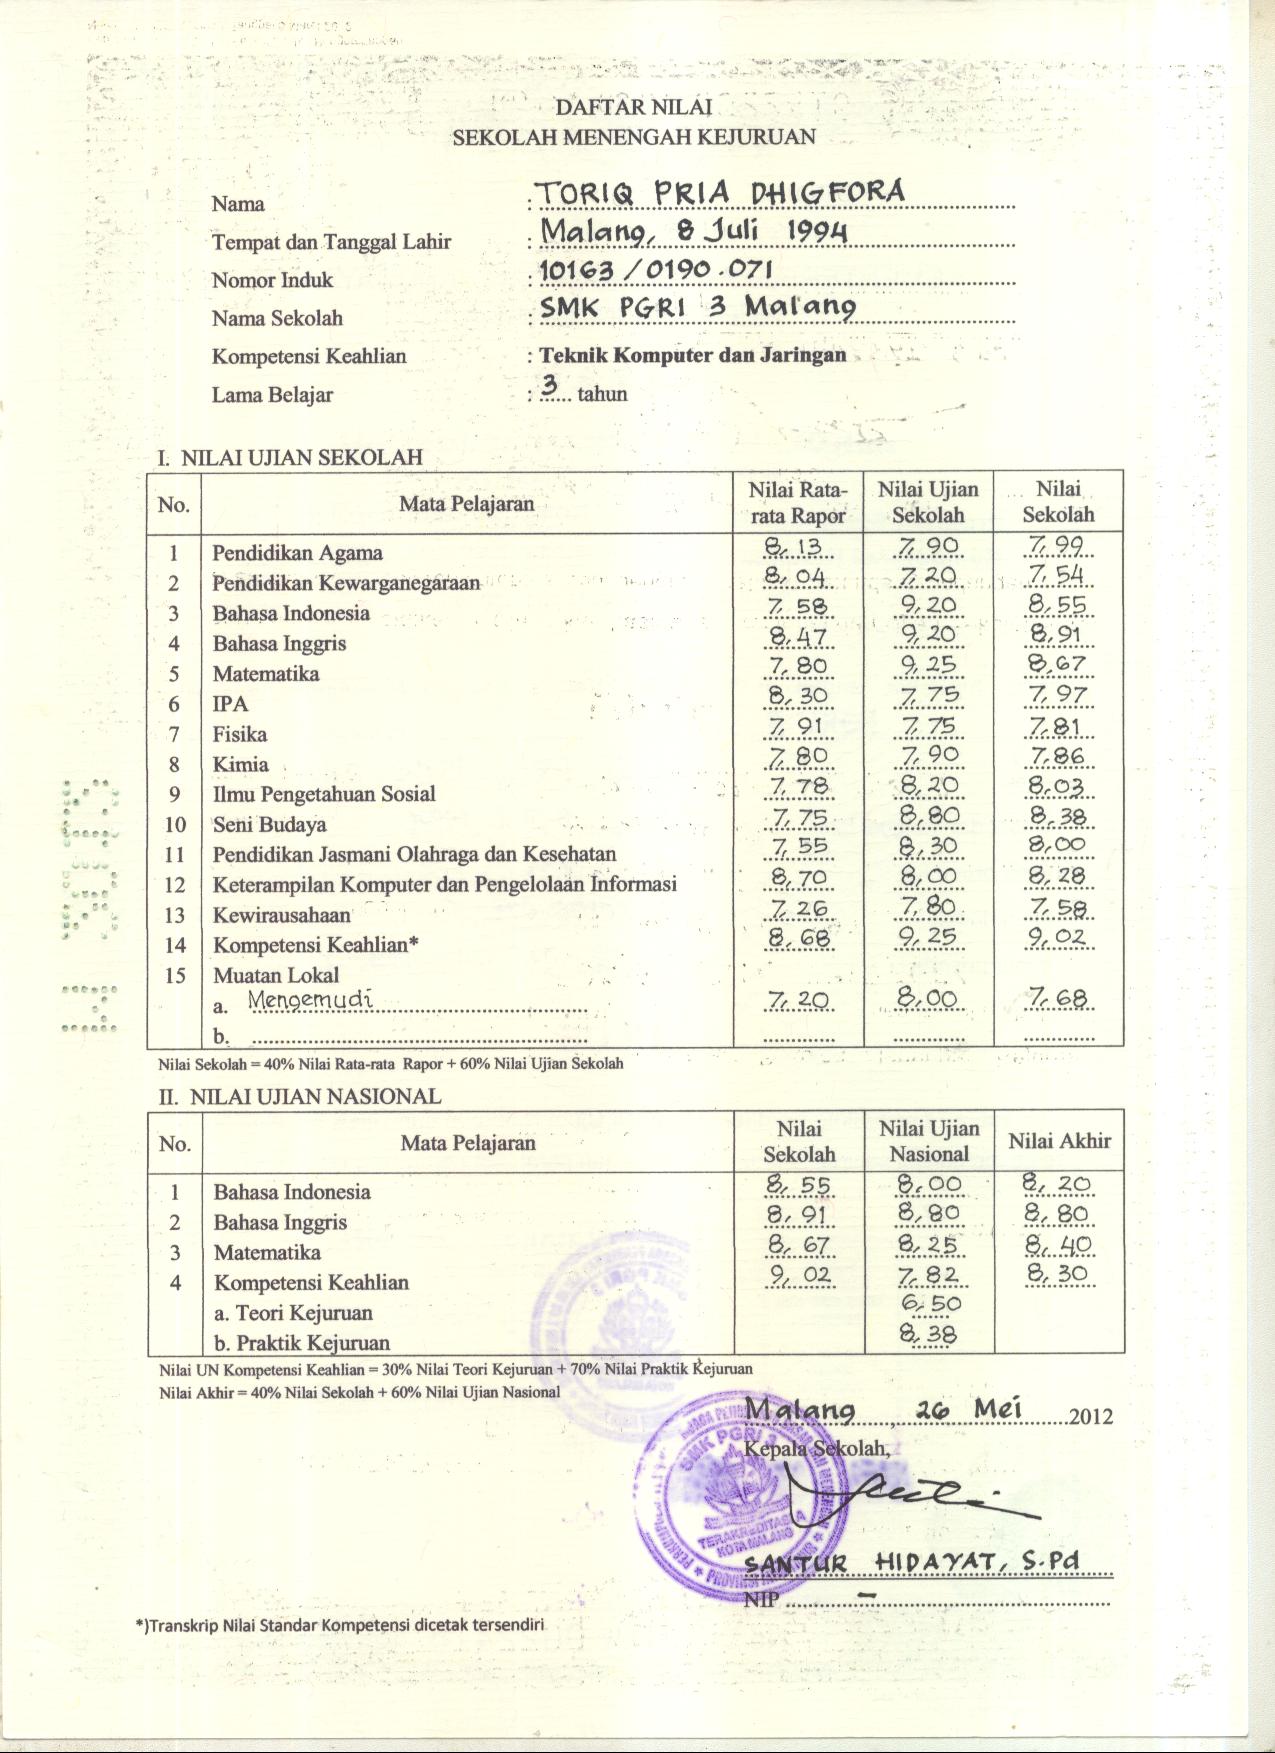 DAFTAR NILAI
SEKOLAH MENENGAH KEJURUAN
Nama : TORIQ PRIA DHIGFORA
Tempat dan Tanggal Lahir : Malang, 8 Juli 1994
Nomor Induk : 10163 / 0190.071
Nama Sekolah : SMK PGRI 3 Malang
Kompetensi Keahlian : Teknik Komputer dan Jaringan
Lama Belajar : 3 tahun
I. NILAI UJIAN SEKOLAH
No. Mata Pelajaran Nilai Rata-rata Rapor Nilai Ujian Sekolah Nilai Sekolah
1 Pendidikan Agama 8,13 7,90 7,99
2 Pendidikan Kewarganegaraan 8,04 7,20 7,54
3 Bahasa Indonesia 7,58 9,20 8,55
4 Bahasa Inggris 8,47 9,20 8,91
5 Matematika 7,80 9,25 8,67
6 IPA 8,30 7,75 7,97
7 Fisika 7,91 7,75 7,81
8 Kimia 7,80 7,90 7,86
9 Ilmu Pengetahuan Sosial 7,78 8,20 8,03
10 Seni Budaya 7,75 8,80 8,38
11 Pendidikan Jasmani Olahraga dan Kesehatan 7,55 8,30 8,00
12 Keterampilan Komputer dan Pengelolaan Informasi 8,70 8,00 8,28
13 Kewirausahaan 7,26 7,80 7,58
14 Kompetensi Keahlian* 8,68 9,25 9,02
15 Muatan Lokal
a. Mengemudi 7,20 8,00 7,68
b.
Nilai Sekolah = 40% Nilai Rata-rata Rapor + 60% Nilai Ujian Sekolah
II. NILAI UJIAN NASIONAL
No. Mata Pelajaran Nilai Sekolah Nilai Ujian Nasional Nilai Akhir
1 Bahasa Indonesia 8,55 8,00 8,20
2 Bahasa Inggris 8,91 8,80 8,80
3 Matematika 8,67 8,25 8,40
4 Kompetensi Keahlian 9,02 7,82 8,30
a. Teori Kejuruan 6,50
b. Praktik Kejuruan 8,38
Nilai UN Kompetensi Keahlian = 30% Nilai Teori Kejuruan + 70% Nilai Praktik Kejuruan
Nilai Akhir = 40% Nilai Sekolah + 60% Nilai Ujian Nasional
Malang, 26 Mei 2012
Kepala Sekolah,
SMK PGRI 3
TERAKREDITASI A
KOTA MALANG
SANTUR HIDAYAT, S.Pd
NIP -
*)Transkrip Nilai Standar Kompetensi dicetak tersendiri